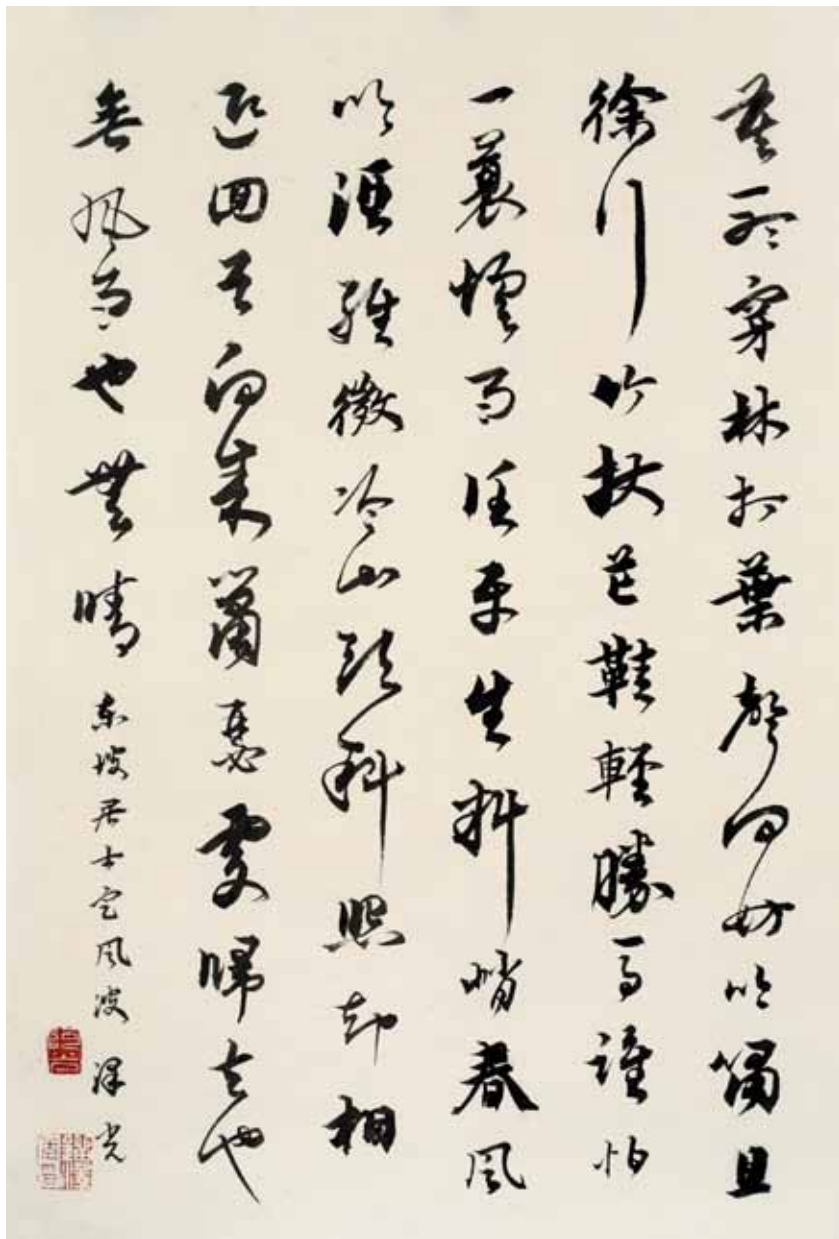 莫聽穿林打葉聲何妨吟嘯且
徐行竹杖芒鞋輕勝馬誰怕
一蓑煙雨任平生料峭春風
吹酒醒微冷山頭斜照却相
迎回首向來蕭瑟處歸去也
無風雨也無晴
東坡居士定風波 澤光